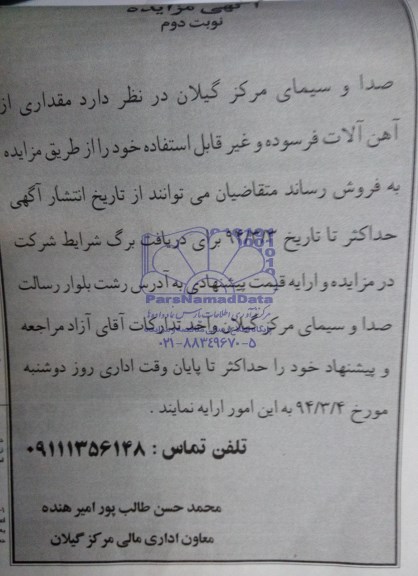 آگهی مزایده
نوبت دوم
صدا و سیمای مرکز گیلان در نظر دارد مقداری از
آهن آلات فرسوده و غیر قابل استفاده خود را از طریق مزایده
به فروش رساند متقاضیان می توانند از تاریخ انتشار آگهی
حداکثر تا تاریخ ۹۴/۳/۳ برای دریافت برگ شرایط شرکت
در مزایده و ارایه قیمت پیشنهادی به آدرس رشت بلوار رسالت
ParsNamadData
صدا و سیمای مرکز گیلان واحد تدارکات آقای آزاد مراجعه
۰۲۱-۸۸۳۴۹۶۷۰-۵
و پیشنهاد خود را حداکثر تا پایان وقت اداری روز دوشنبه
مورخ ۹۴/۳/۴ به این امور ارایه نمایند .
تلفن تماس : ۰۹۱۱۱۳۵۶۱۴۸
محمد حسن طالب پور امیر هنده
معاون اداری مالی مرکز گیلان